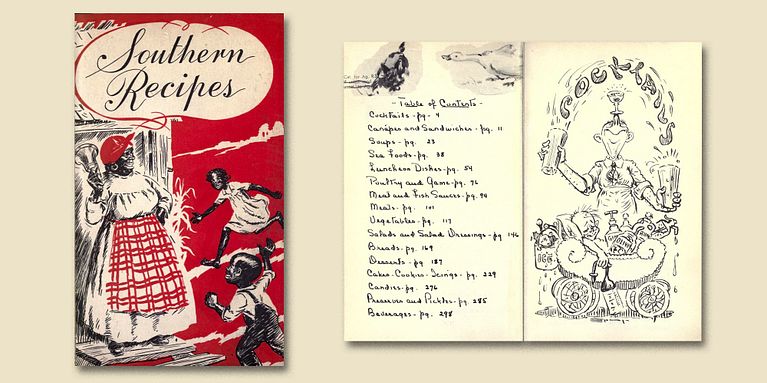 Southern
Recipes
- Table of Contents -
Cocktails - pg. 4
Canapes and Sandwiches - pg. 11
Soups - pg. 23
Sea Foods - pg. 38
Luncheon Dishes - pg. 54
Poultry and Game - pg. 76
Meat and Fish Sauces - pg. 94
Meats - pg. 101
Vegetables - pg. 117
Salads and Salad Dressings - pg. 146
Breads - pg. 169
Desserts - pg. 187
Cakes - Cookies - Icings - pg. 229
Candies - pg. 276
Preserves and Pickles - pg. 285
Beverages - pg. 298
COCKTAILS
ICE